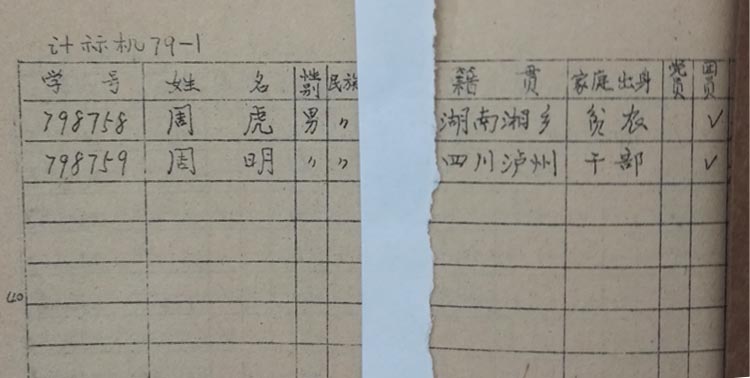 计标机79-1
学号 姓名 性别 民族 籍贯 家庭出身 党员 团员
798758 周虎 男 〃 湖南湘乡 贫农 √
798759 周明 〃 〃 四川泸州 干部 √
40